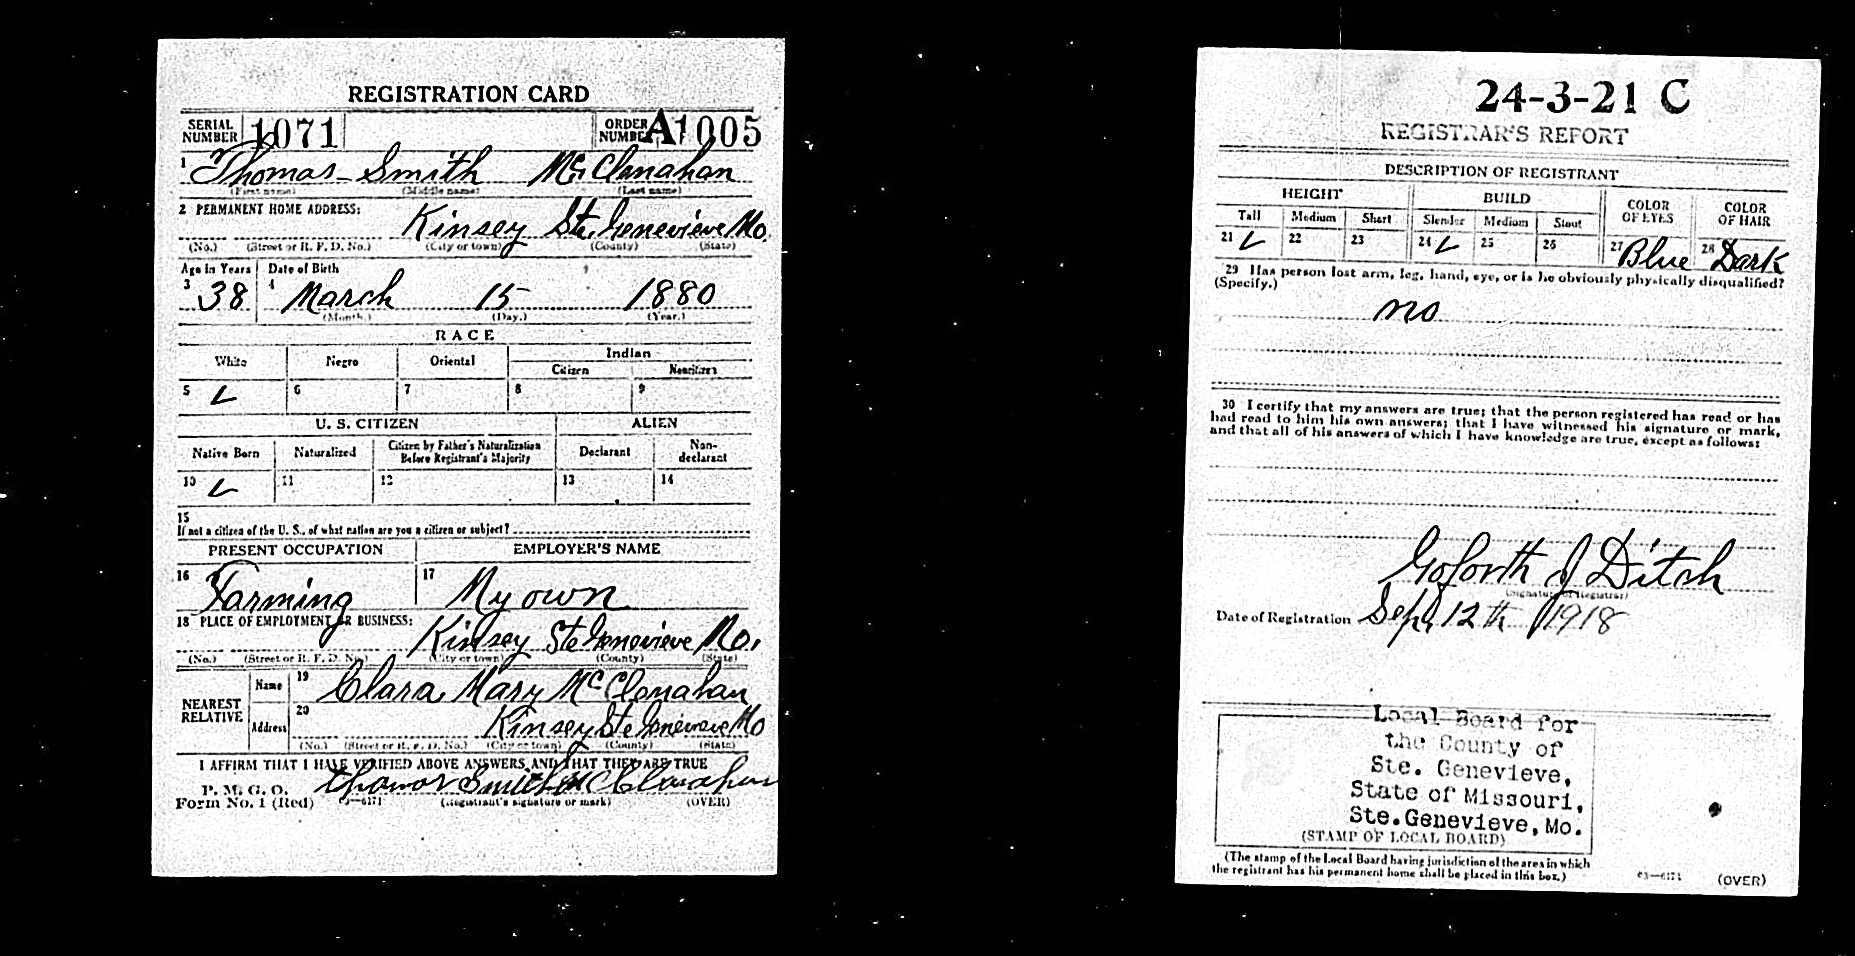 REGISTRATION CARD
SERIAL NUMBER 1071 ORDER NUMBER A1005
1 Thomas Smith McClenahan
(First name) (Middle name) (Last name)
2 PERMANENT HOME ADDRESS:
Kinsey Ste. Genevieve Mo.
(No.) (Street or R. F. D. No.) (City or town) (County) (State)
Age in Years Date of Birth
3 38 4 March 15 1880
(Month.) (Day.) (Year.)
RACE
White Negro Oriental Indian
Citizen Noncitizen
5 ✓ 6 7 8 9
U. S. CITIZEN ALIEN
Native Born Naturalized Citizen by Father's Naturalization Before Registrant's Majority Declarant Non-declarant
10 ✓ 11 12 13 14
15
If not a citizen of the U. S., of what nation are you a citizen or subject?
PRESENT OCCUPATION EMPLOYER'S NAME
16 Farming 17 My own
18 PLACE OF EMPLOYMENT OR BUSINESS:
Kinsey Ste Genevieve Mo.
(No.) (Street or R. F. D. No.) (City or town) (County) (State)
NEAREST RELATIVE Name 19 Clara Mary McClenahan
Address 20 Kinsey Ste Genevieve Mo
(No.) (Street or R. F. D. No.) (City or town) (County) (State)
I AFFIRM THAT I HAVE VERIFIED ABOVE ANSWERS AND THAT THEY ARE TRUE
P. M. G. O.
Form No. 1 (Red) 03—6171 Thomas Smith McClenahan
(Registrant's signature or mark) (OVER)
24-3-21 C
REGISTRAR'S REPORT
DESCRIPTION OF REGISTRANT
HEIGHT BUILD COLOR OF EYES COLOR OF HAIR
Tall Medium Short Slender Medium Stout
21 ✓ 22 23 24 ✓ 25 26 27 Blue 28 Dark
29 Has person lost arm, leg, hand, eye, or is he obviously physically disqualified?
(Specify.)
no
30 I certify that my answers are true; that the person registered has read or has
had read to him his own answers; that I have witnessed his signature or mark,
and that all of his answers of which I have knowledge are true, except as follows:
Goforth J Ditch
(Signature of Registrar)
Date of Registration Sept. 12th 1918
Local Board for
the County of
Ste. Genevieve,
State of Missouri,
Ste. Genevieve, Mo.
(STAMP OF LOCAL BOARD)
(The stamp of the Local Board having jurisdiction of the area in which
the registrant has his permanent home shall be placed in this box.)
03—6171 (OVER)